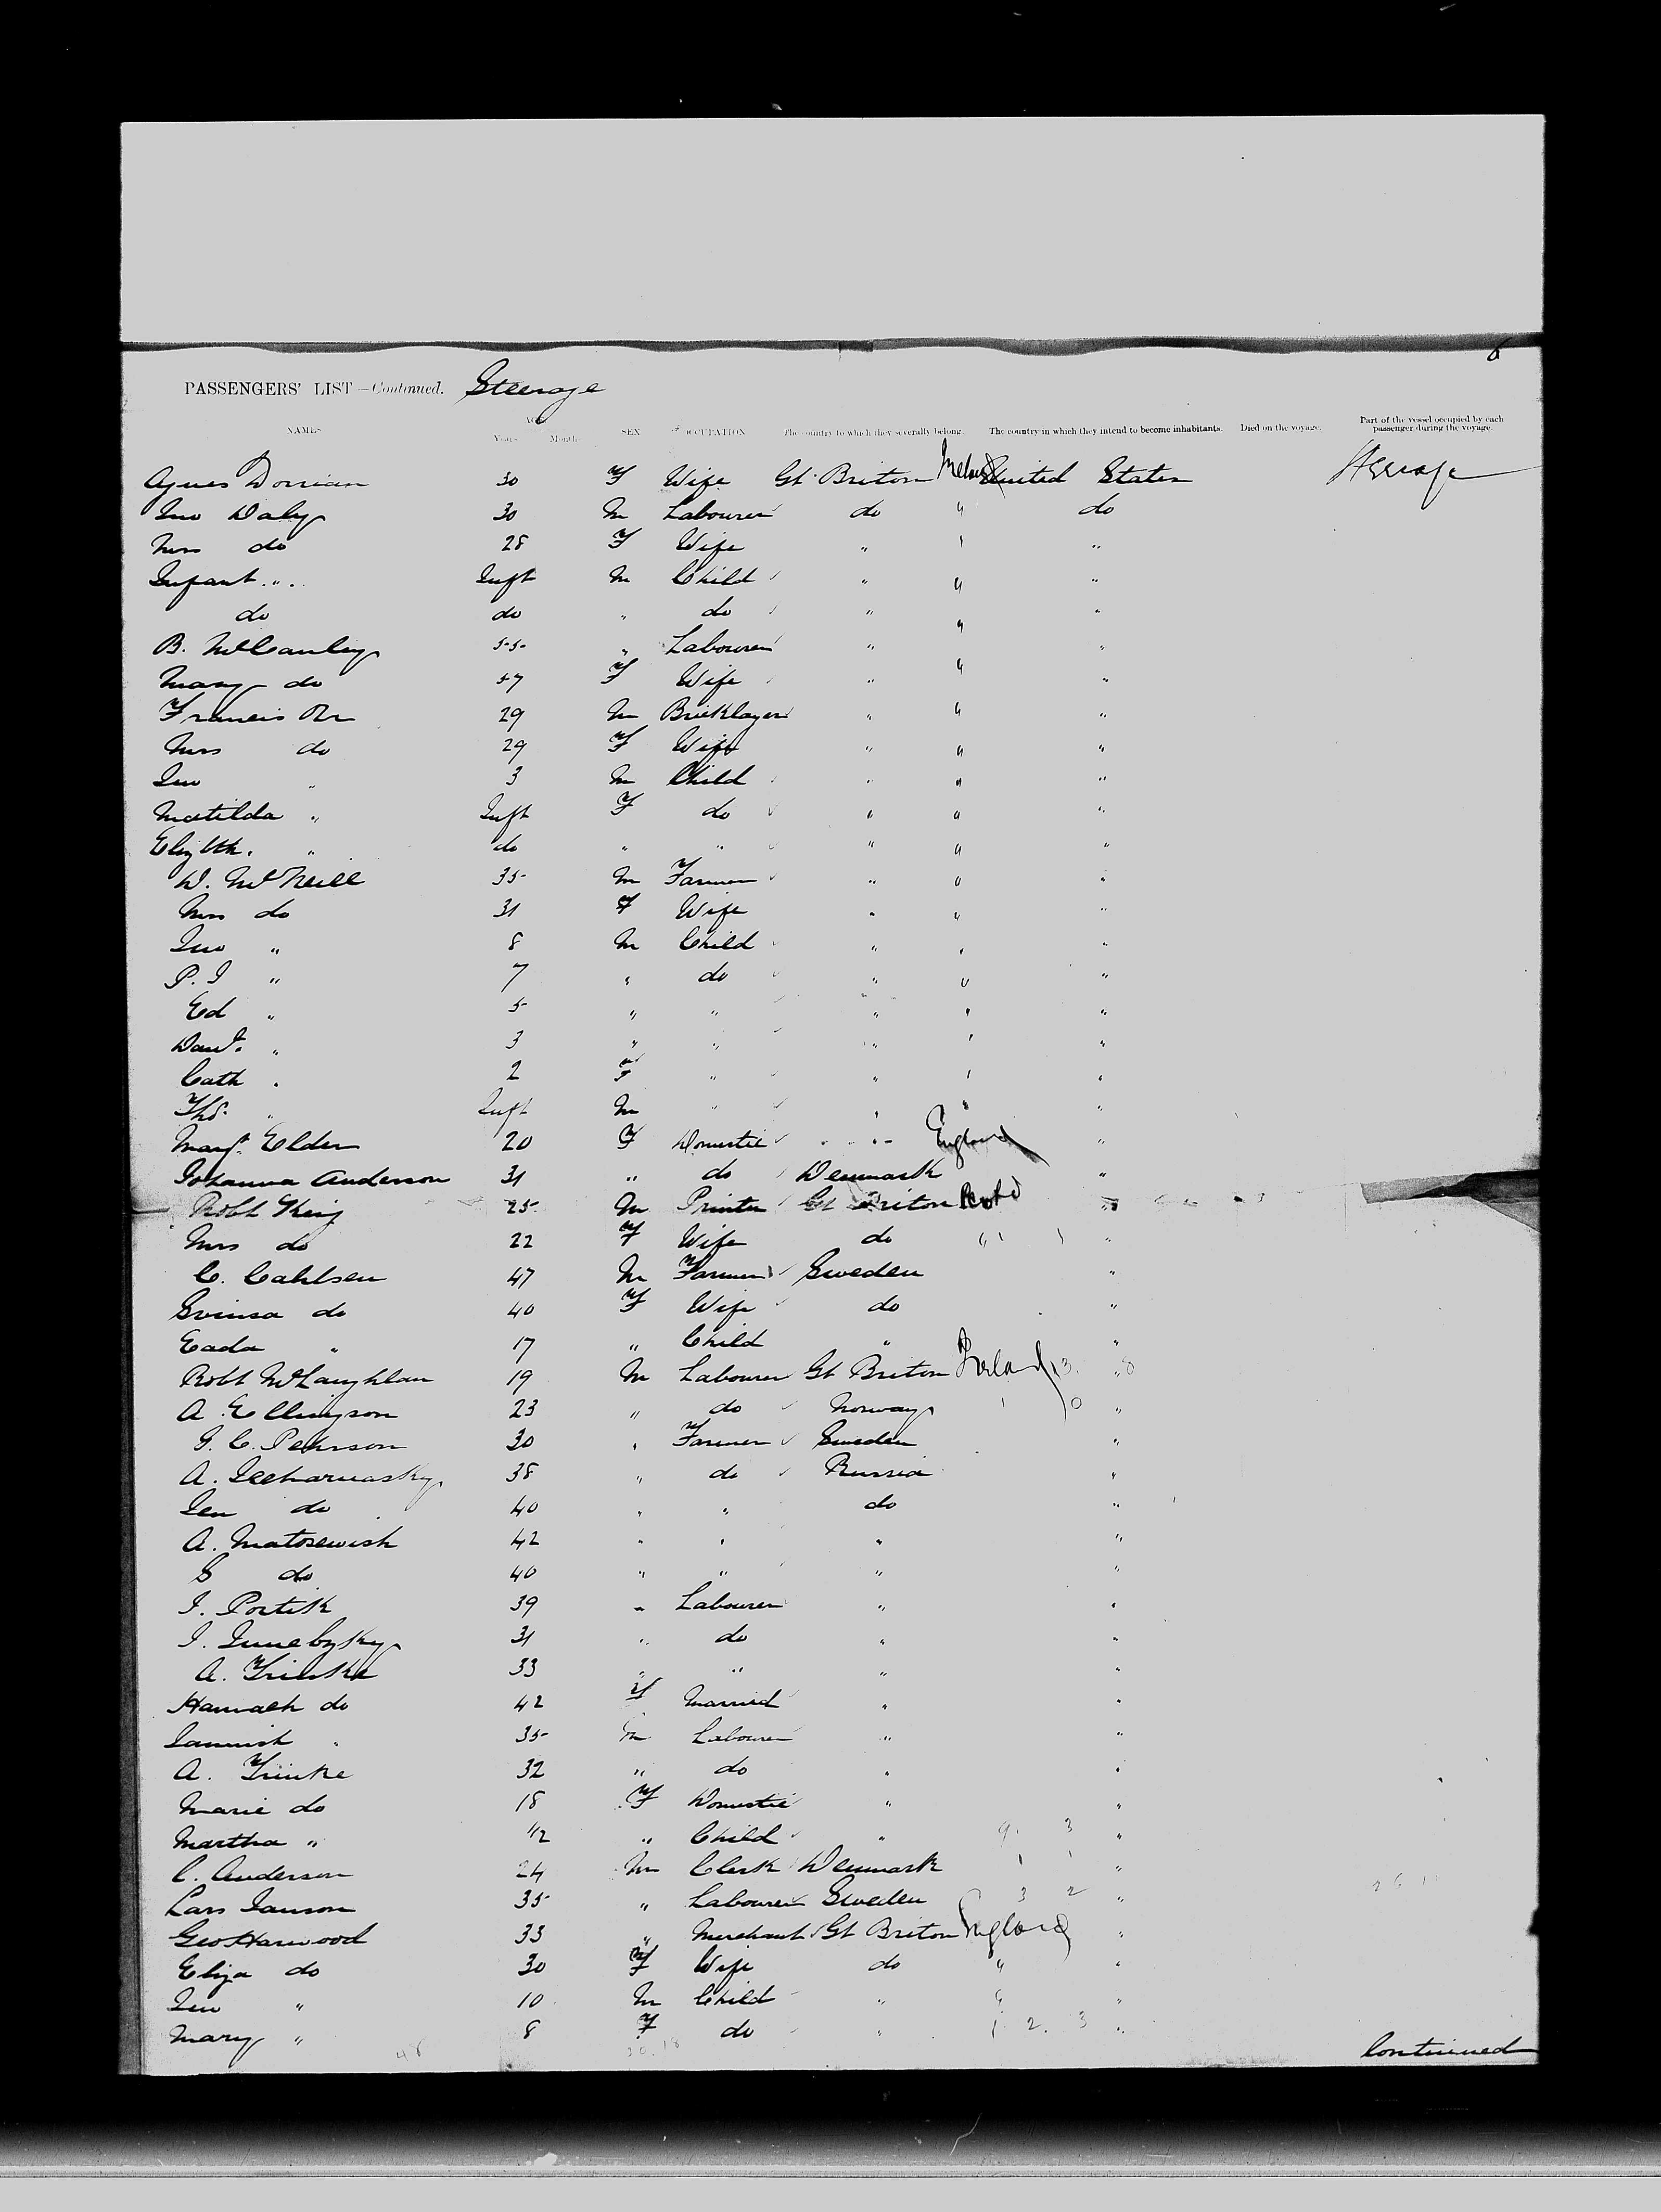 6
PASSENGERS' LIST—Continued. Steerage
NAMES AGE Years Months SEX OCCUPATION The country to which they severally belong. The country in which they intend to become inhabitants. Died on the voyage. Part of the vessel occupied by each passenger during the voyage.
Agnes Dorrian 30 F Wife Gt Briton Ireland United States Steerage
Jno Daly 30 M Labourer do " do
Mrs do 28 F Wife " " "
Infant " Inft M Child " " "
do do " do " " "
B. McCauley 55 " Labourer " " "
Mary do 57 F Wife " " "
Francis Orr 29 M Bricklayer " " "
Mrs do 29 F Wife " " "
Jno " 3 M Child " " "
Matilda " Inft F do " " "
Elizbth. " do " " " " "
D. McNeill 35 M Farmer " " "
Mrs do 31 F Wife " " "
Jno " 8 M Child " " "
P. J " 7 " do " " "
Ed " 5 " " " " "
Danl. " 3 " " " " "
Cath " 2 F " " " "
Thos. " Inft M " " " "
Margt. Elder 20 F Domestic " England "
Johanna Anderson 31 " do Denmark "
Robt King 25 M Printer Gt Briton Scotd "
Mrs do 22 F Wife do " "
C. Cahlsen 47 M Farmer Sweden "
do 40 F Wife do "
Eada " 17 " Child " "
Robt McLaughlan 19 M Labourer Gt Briton Ireland 3. " 8
A. Ellingson 23 " do Norway 1 0 "
G. C. Pehrson 30 " Farmer Sweden "
A. 38 " do Russia "
do 40 " " do "
A. Matosewish 42 " " " "
S do 40 " " " "
J. Postik 39 " Labourer " "
J. 31 " do " "
A. Frinke 33 " " " "
Hannah do 42 F Married " "
" 35 M Labourer " "
A. Frinke 32 " do " "
Marie do 18 F Domestic " "
Martha " 1/2 " Child " 9. 3 "
C. Anderson 24 M Clerk Denmark 1 1 "
Lars Janson 35 " Labourer Sweden 3 2 " 26 11
Geo Harwood 33 " Merchant Gt Briton England "
Eliza do 30 F Wife do " "
Jno " 10 M Child " " "
Mary " 8 F do " 1 2. 3 "
48 30.18 Continued